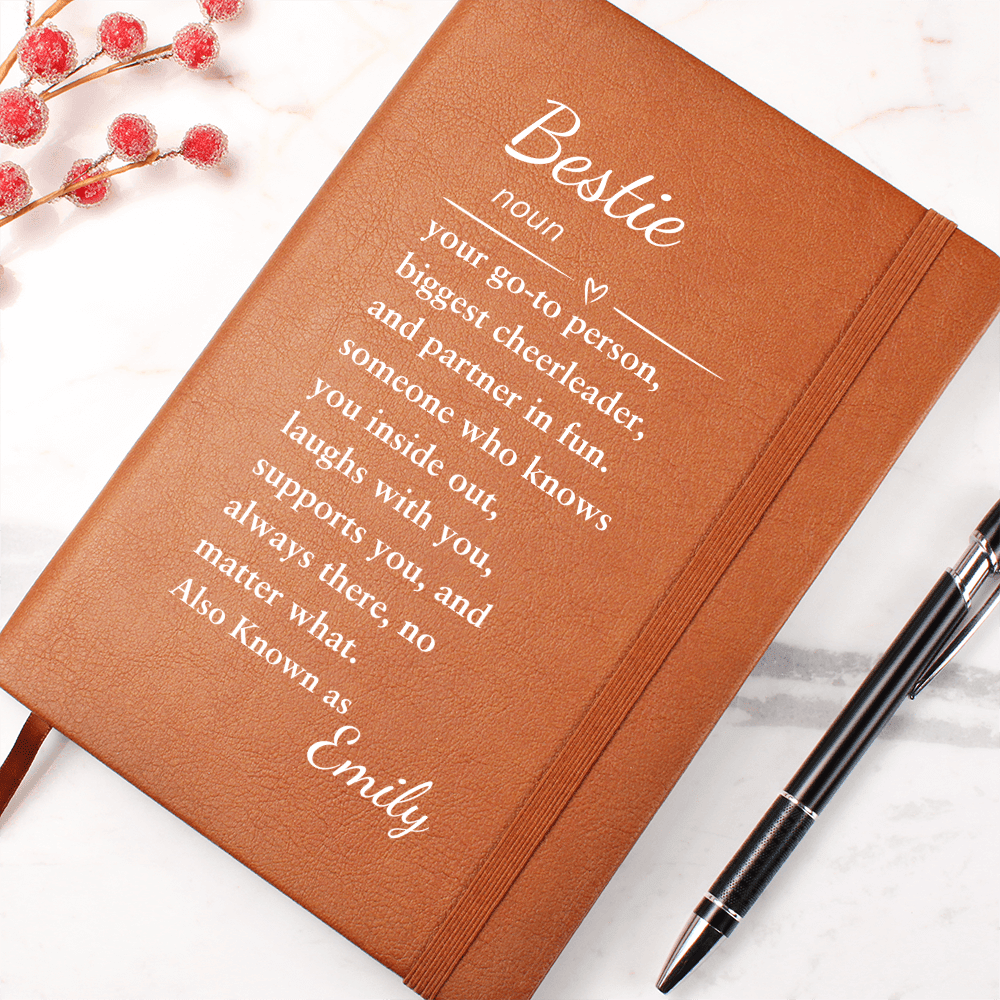 Bestie
noun
your go-to person,
biggest cheerleader,
and partner in fun.
someone who knows
you inside out,
laughs with you,
supports you, and
always there, no
matter what.
Also Known as
Emily